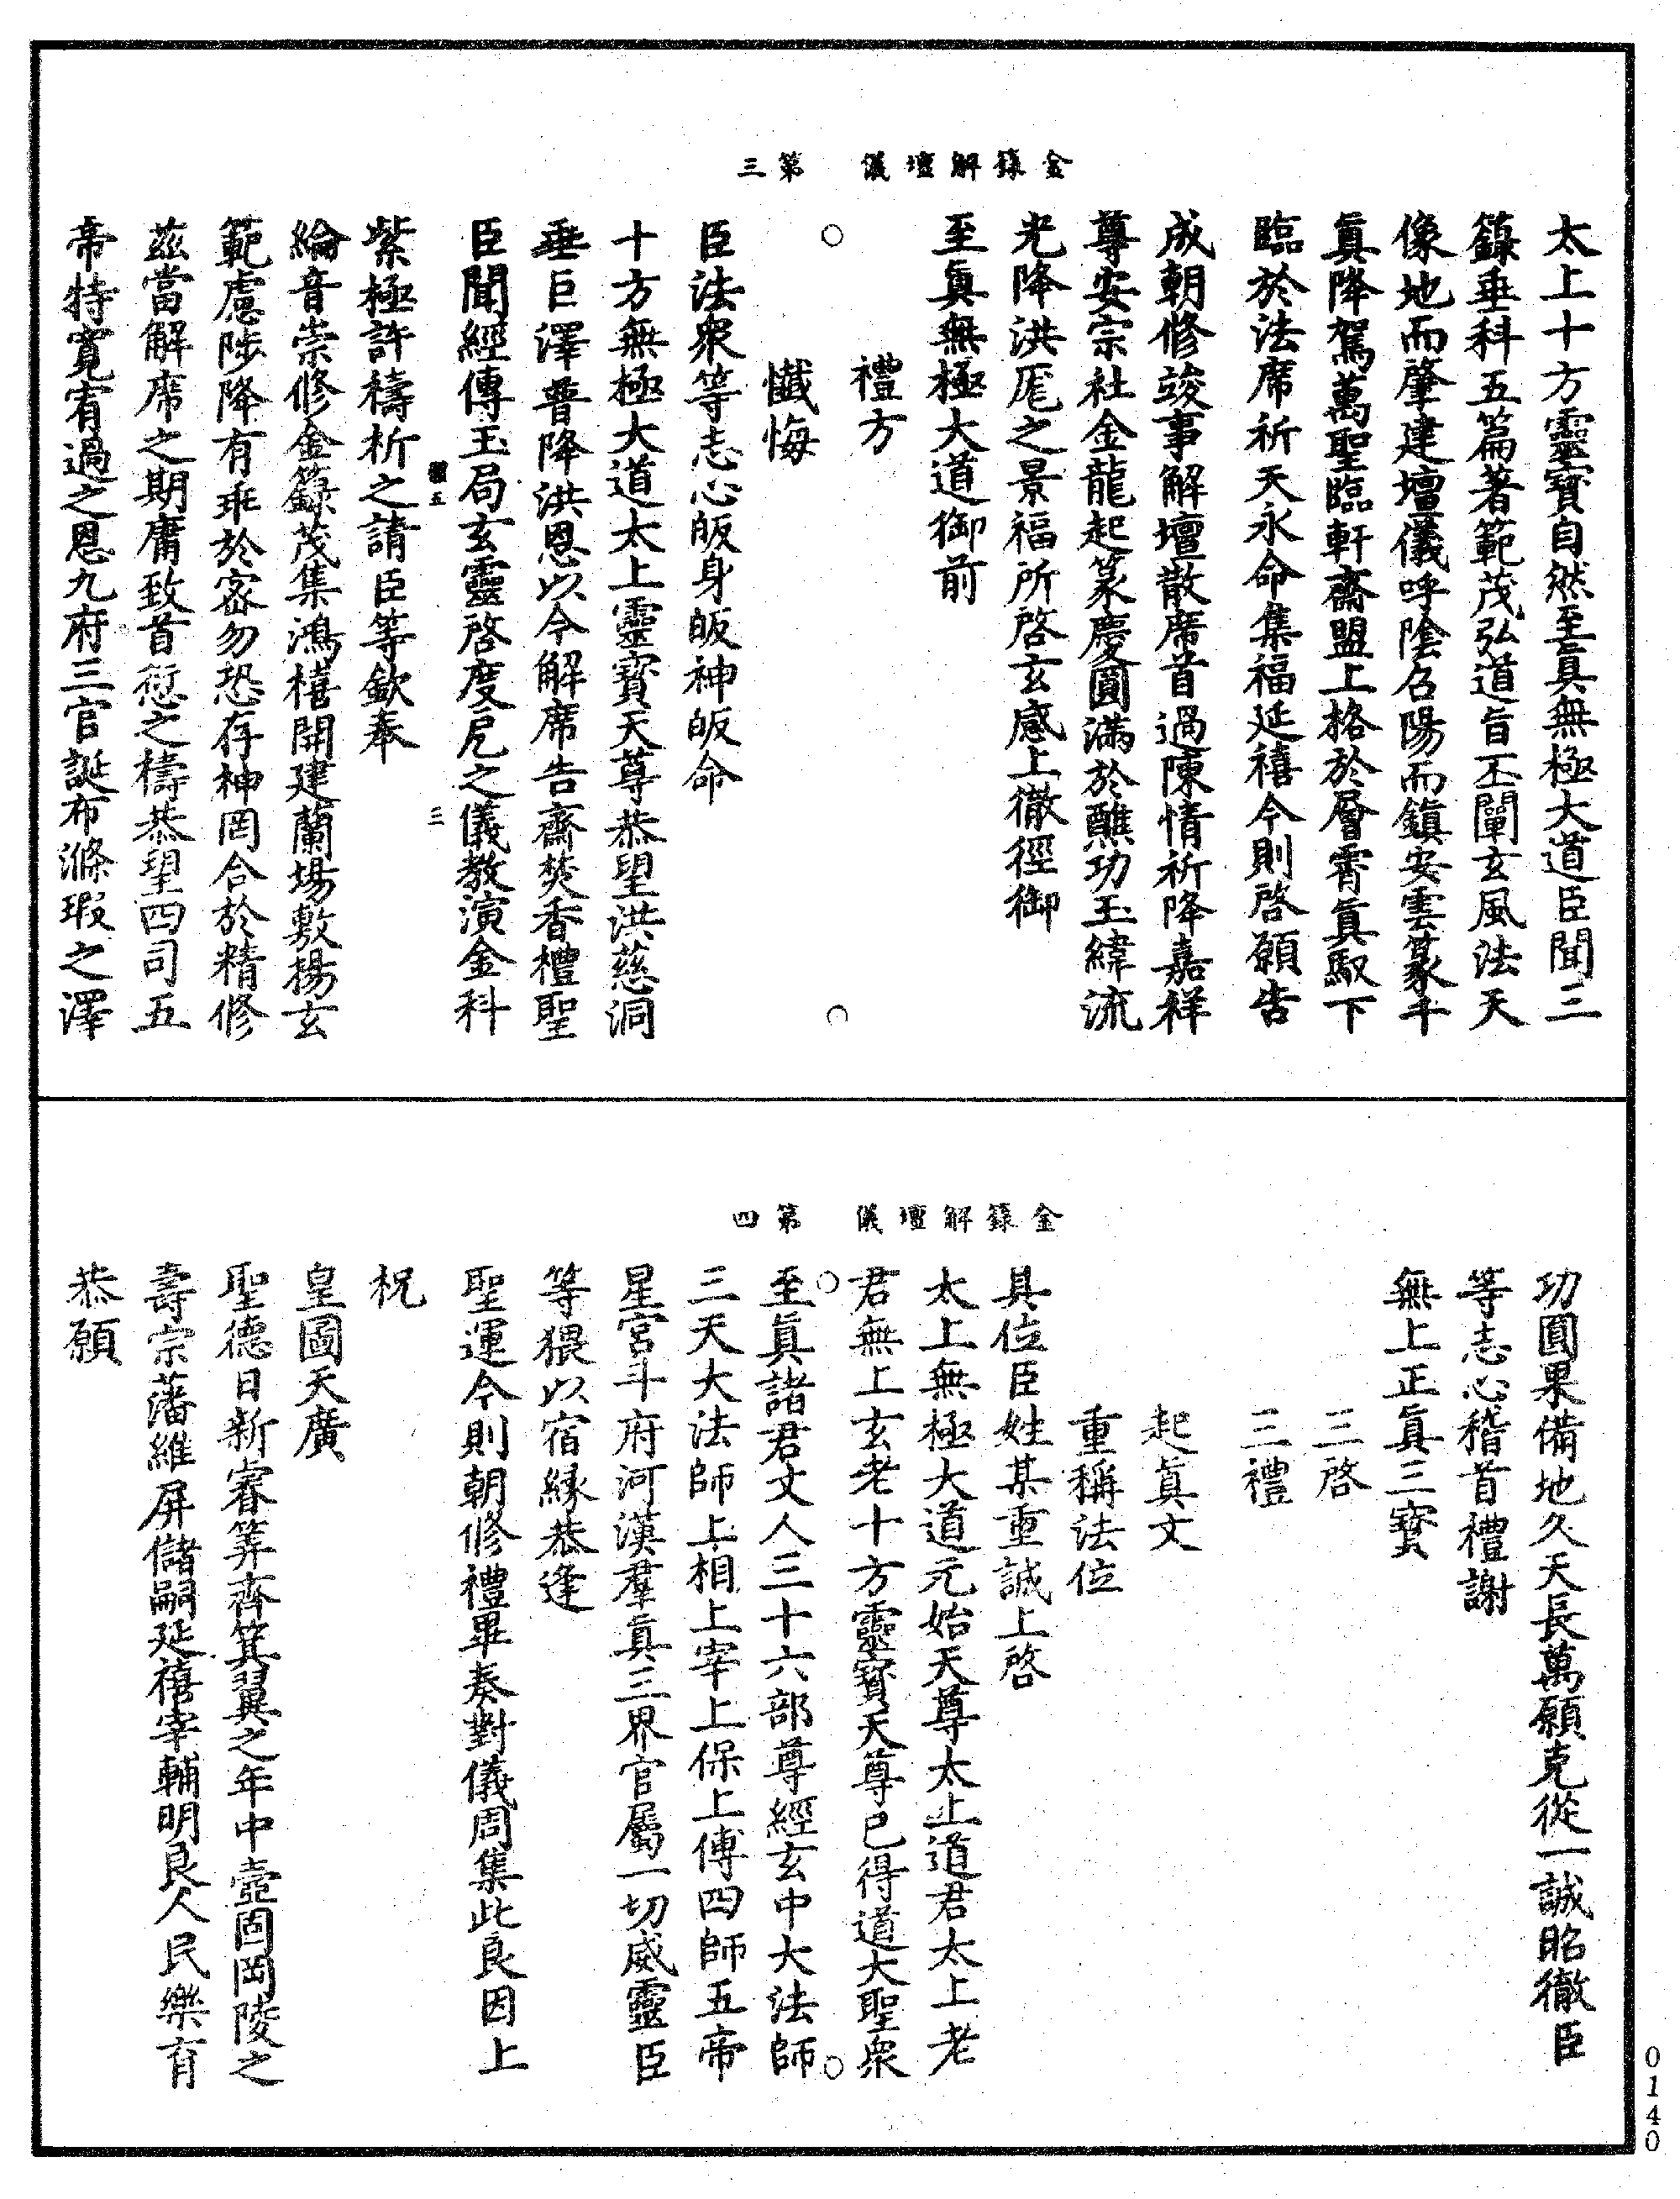 金籙解壇儀　第三
太上十方靈寶自然至眞無極大道臣聞三
籙垂科五篇著範茂弘道旨丕闡玄風法天
像地而肇建壇儀呼陰召陽而鎮安雲篆千
眞降駕萬聖臨軒齋盟上格於層霄眞馭下
臨於法席祈天永命集福延禧今則啓願告
成朝修竣事解壇散席首過陳情祈降嘉祥
尊安宗社金龍起篆慶圓滿於醮功玉緯流
光降洪厖之景福所啓玄感上徹徑御
至眞無極大道御前
禮方
懺悔
臣法衆等志心皈身皈神皈命
十方無極大道太上靈寶天尊恭望洪慈洞
垂巨澤普降洪恩以今解席告齋焚香禮聖
臣聞經傳玉局玄靈啓度厄之儀教演金科
三
紫極許禱祈之請臣等欽奉
綸音崇修金籙茂集鴻禧開建蘭場敷揚玄
範慮陟降有乖於密勿恐存神罔合於精修
茲當解席之期庸致首愆之禱恭望四司五
帝特寬宥過之恩九府三官誕布滌瑕之澤
金籙解壇儀　第四
功圓果備地久天長萬願克從一誠昭徹臣
等志心稽首禮謝
無上正眞三寶
三啓
三禮
起眞文
重稱法位
具位臣姓某重誠上啓
太上無極大道元始天尊太上道君太上老
君無上玄老十方靈寶天尊已得道大聖衆
至眞諸君丈人三十六部尊經玄中大法師
三天大法師上相上宰上保上傅四師五帝
星宮斗府河漢羣眞三界官屬一切威靈臣
等猥以宿緣恭逢
聖運今則朝修禮畢奏對儀周集此良因上
祝
皇圖天廣
聖德日新睿筭齊箕翼之年中壼固岡陵之
壽宗藩維屏儲嗣延禧宰輔明良人民樂育
恭願
0140